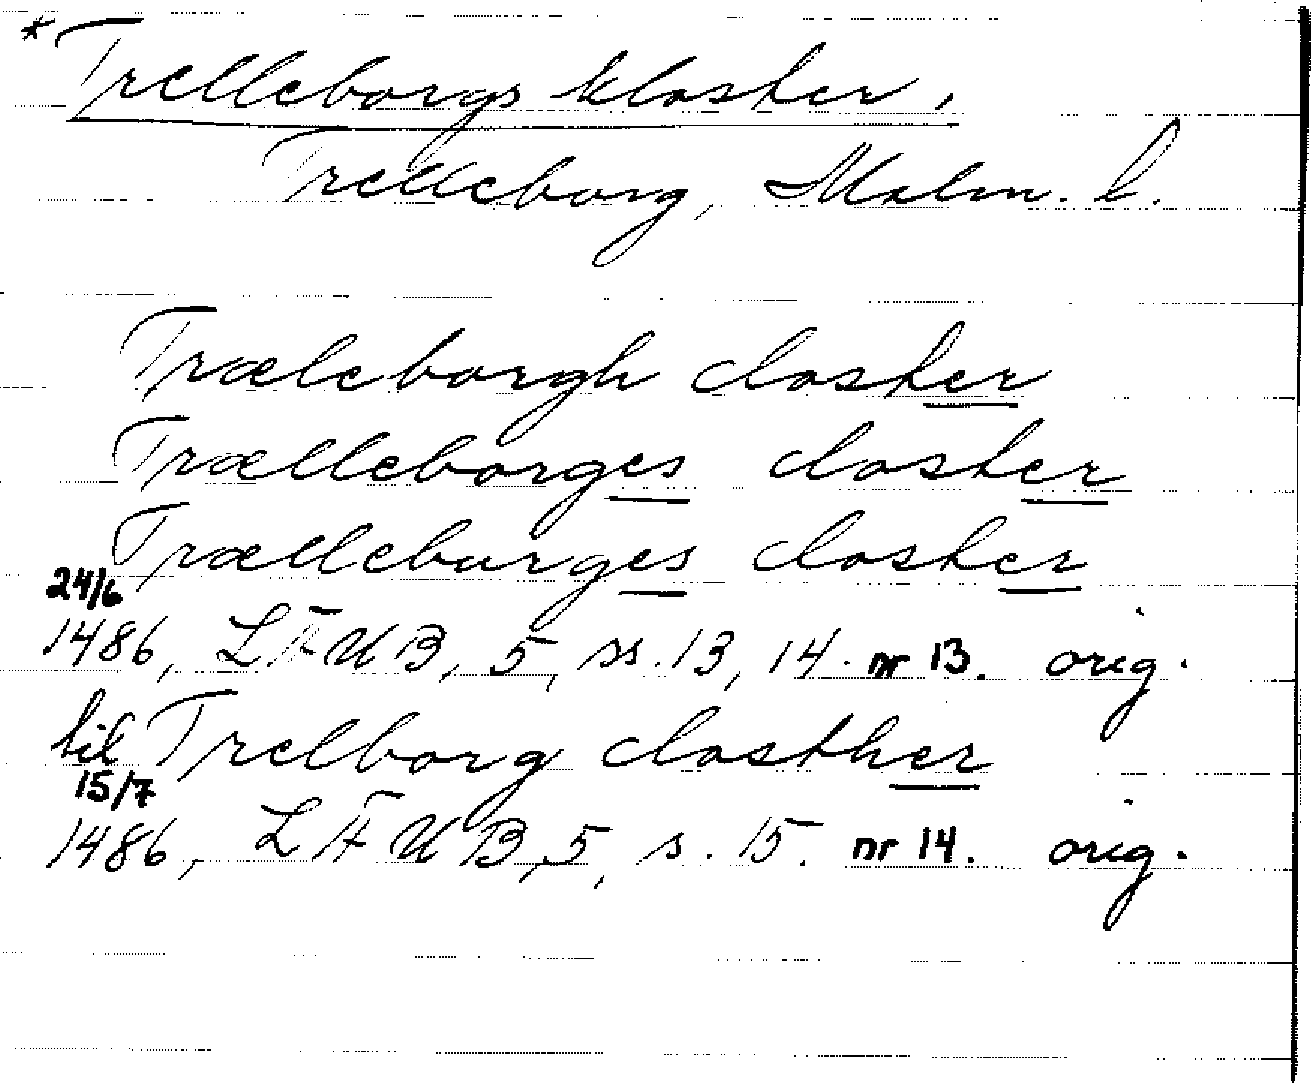 *Trelleborgs kloster.
Trelleborg, Malm. l.
Træleborgh closter
Trælleborges closter
Trælleburges closter
24/6
1486, LÄUB, 5, ss. 13, 14. nr 13. orig.
til Trelborg closther
15/7
1486, LÄUB, 5, s. 15. nr 14. orig.